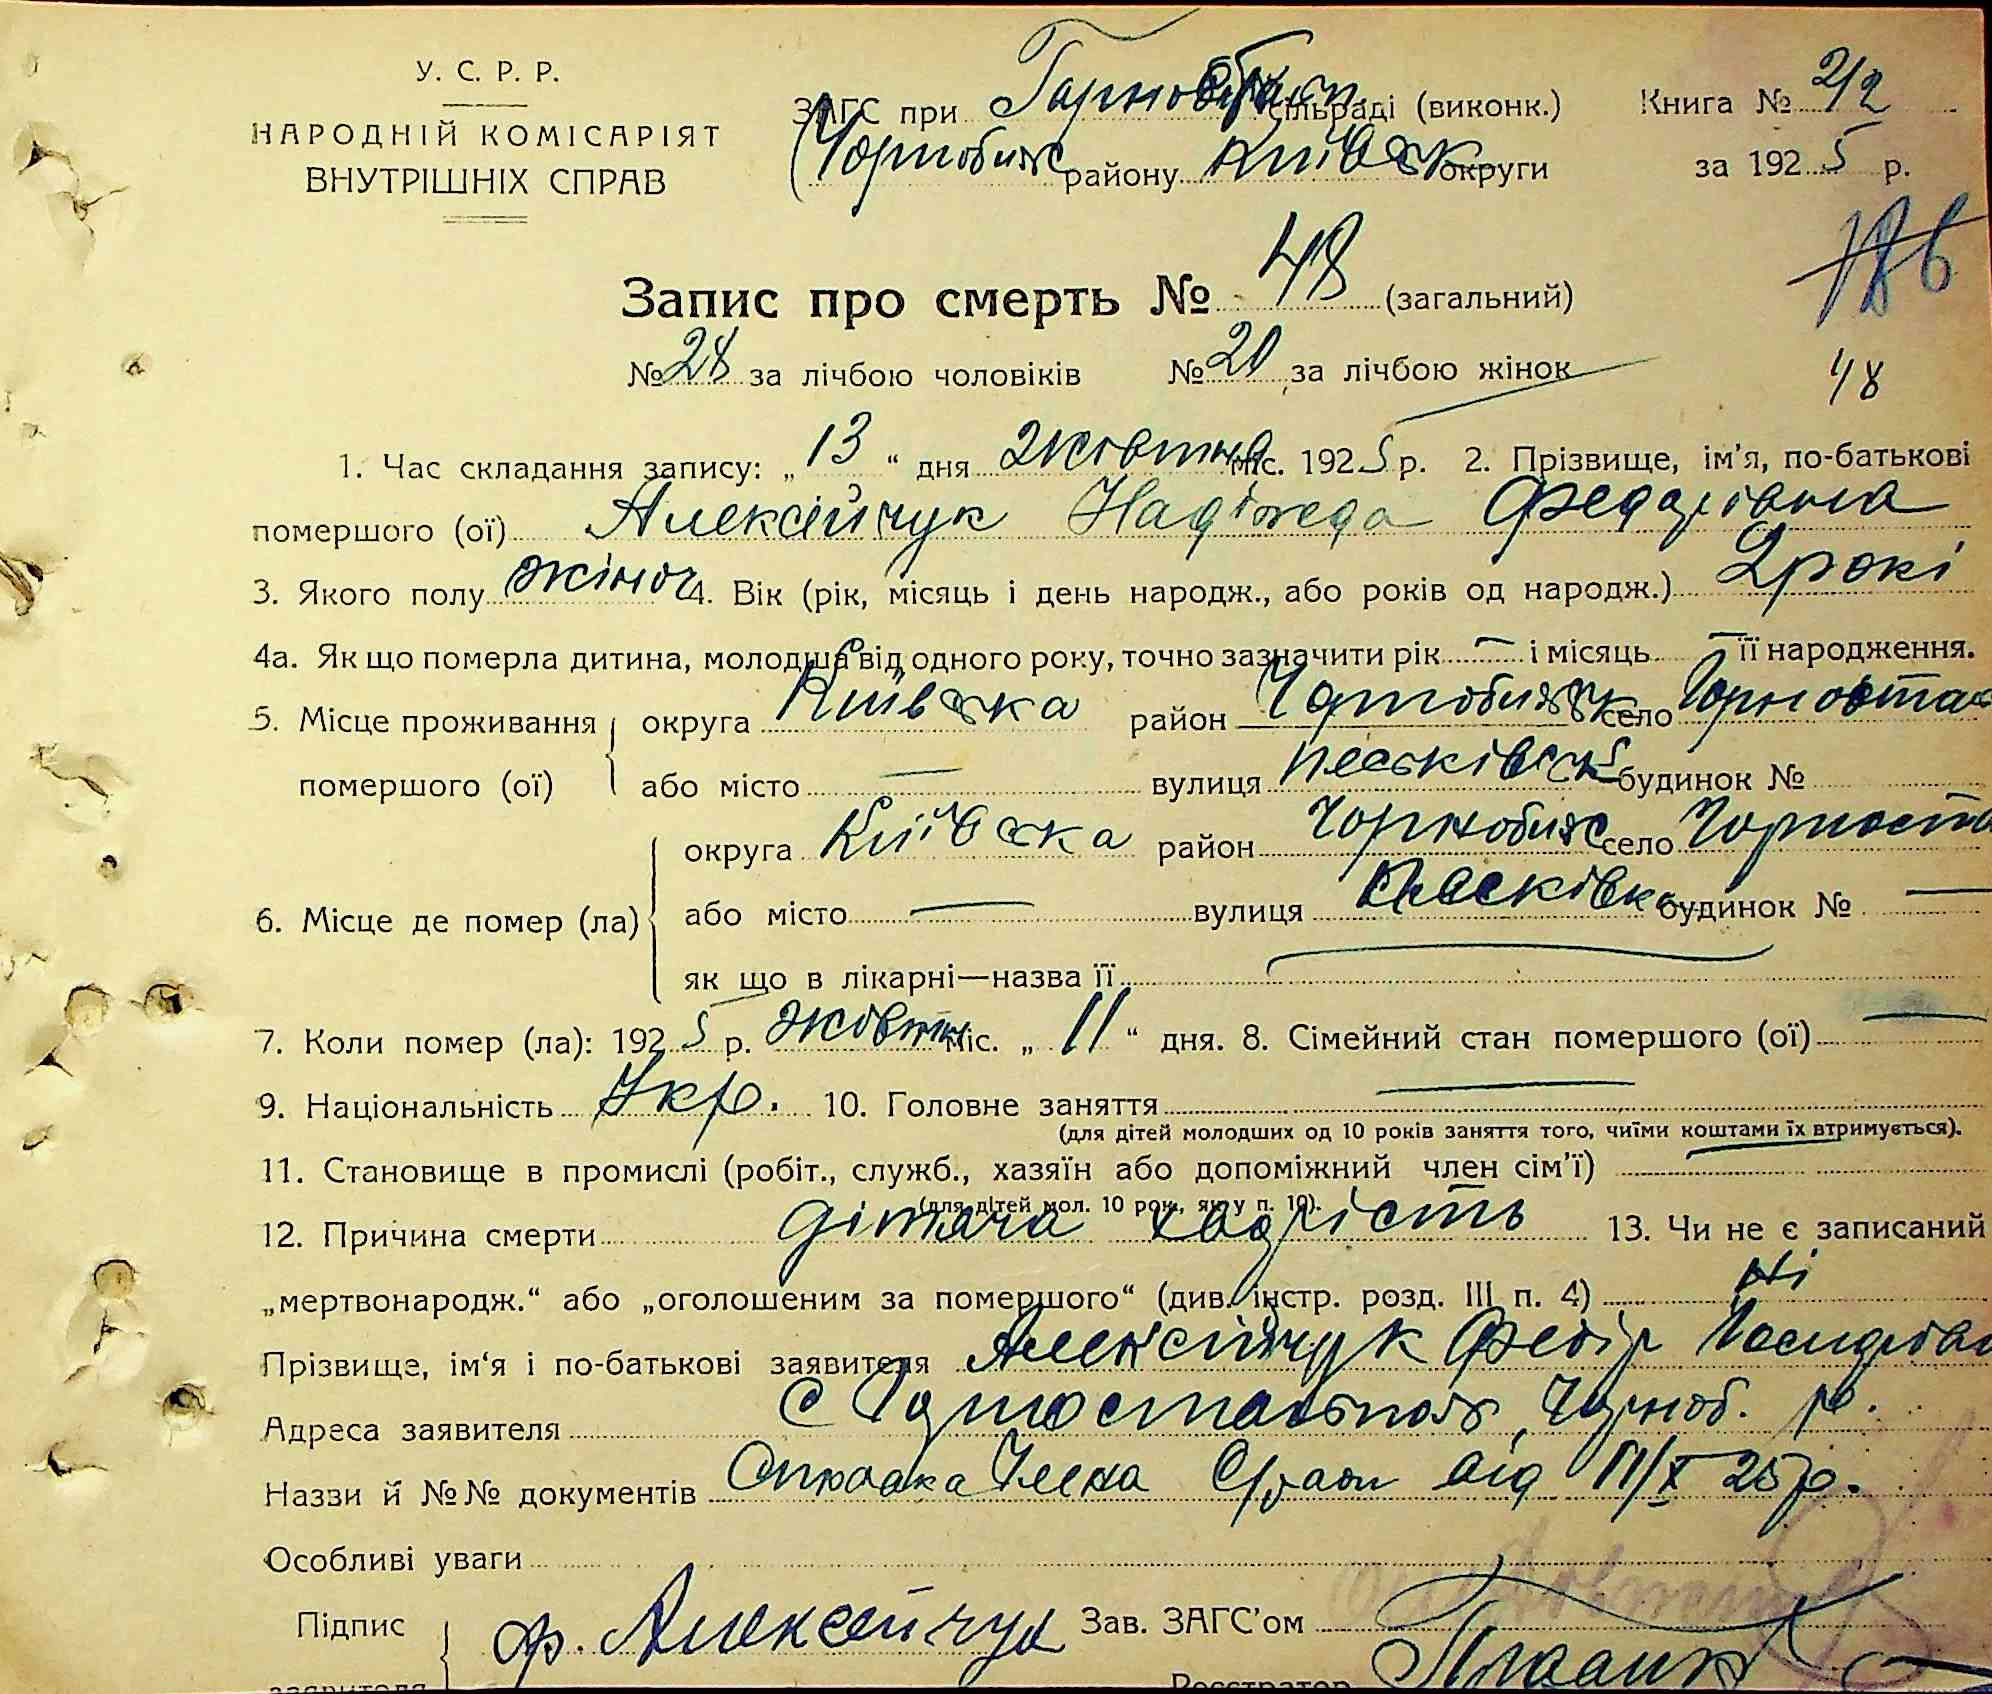 У. С. Р. Р.
НАРОДНІЙ КОМІСАРІЯТ
ВНУТРІШНІХ СПРАВ
ЗАГС при сільраді (виконк.)
Чорнобильс району Київськ округи
Книга № 2/2
за 1925 р.
Запис про смерть № 48 (загальний)
№ 28 за лічбою чоловіків № 20 за лічбою жінок
48
1. Час складання запису: „ 13 “ дня жовтня міс. 1925 р. 2. Прізвище, ім'я, по-батькові
помершого (ої) Алексійчук Надіжда Федорівна
3. Якого полу жіноч 4. Вік (рік, місяць і день народж., або років од народж.) 2 рокі
4а. Як що померла дитина, молодша від одного року, точно зазначити рік — і місяць — її народження.
5. Місце проживання помершого (ої) округа Київська район Чорнобильськ село Горностай
або місто — вулиця будинок №
6. Місце де помер (ла) округа Київська район Чорнобильс село Горноста
або місто — вулиця Пасківка будинок № —
як що в лікарні—назва її
7. Коли помер (ла): 1925 р. жовтня міс. „ 11 “ дня. 8. Сімейний стан помершого (ої) —
9. Національність Укр. 10. Головне заняття —
(для дітей молодших од 10 років заняття того, чиїми коштами їх втримується).
11. Становище в промислі (робіт., служб., хазяїн або допоміжний член сім'ї) —
(для дітей мол. 10 рок., як у п. 10).
12. Причина смерти дітяча 13. Чи не є записаний
„мертвонародж.“ або „оголошеним за помершого“ (див. інстр. розд. III п. 4) Ні
Прізвище, ім‘я і по-батькові заявителя Алексійчук Федір
Адреса заявителя с Чорноб. р.
Назви й №№ документів від 11/X 25 р.
Особливі уваги
Підпис заявителя Ф. Алексейчук Зав. ЗАГС'ом
Реєстратор